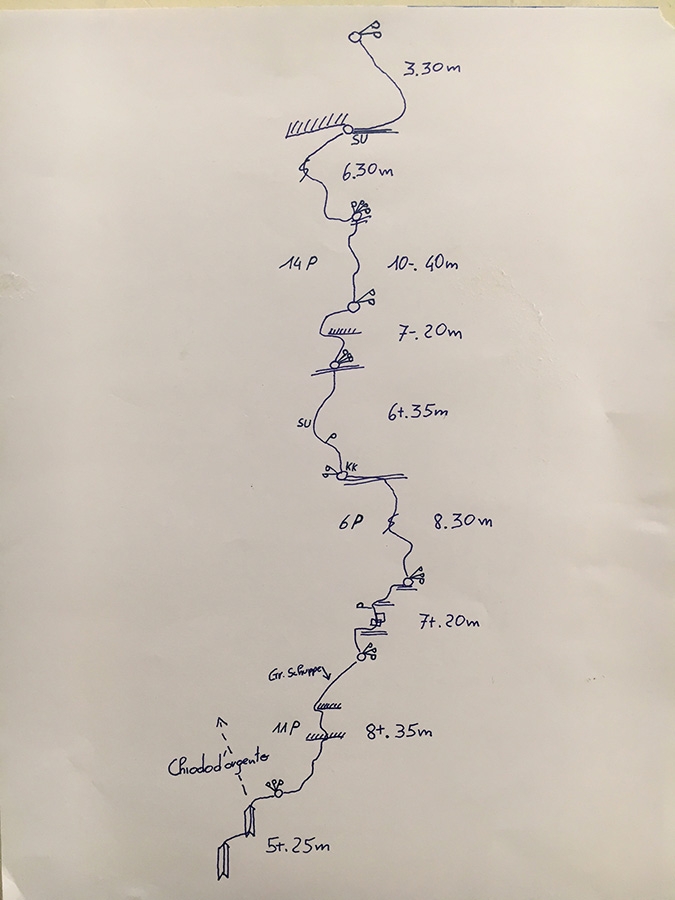 3.30m
SU
6.30m
14P 10-.40m
7-.20m
6+.35m
SU
KK
6P 8.30m
7+.20m
Gr. Schuppe
11P 8+.35m
Chiodo d'argento
5+.25m